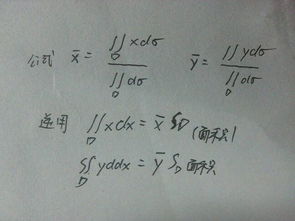 公式 x̄ = ∬_D xdσ / ∬_D dσ ȳ = ∬_D ydσ / ∬_D dσ
逆用 ∬_D xdx = x̄ S_D (面积)
∬_D yddx = ȳ S_D 面积